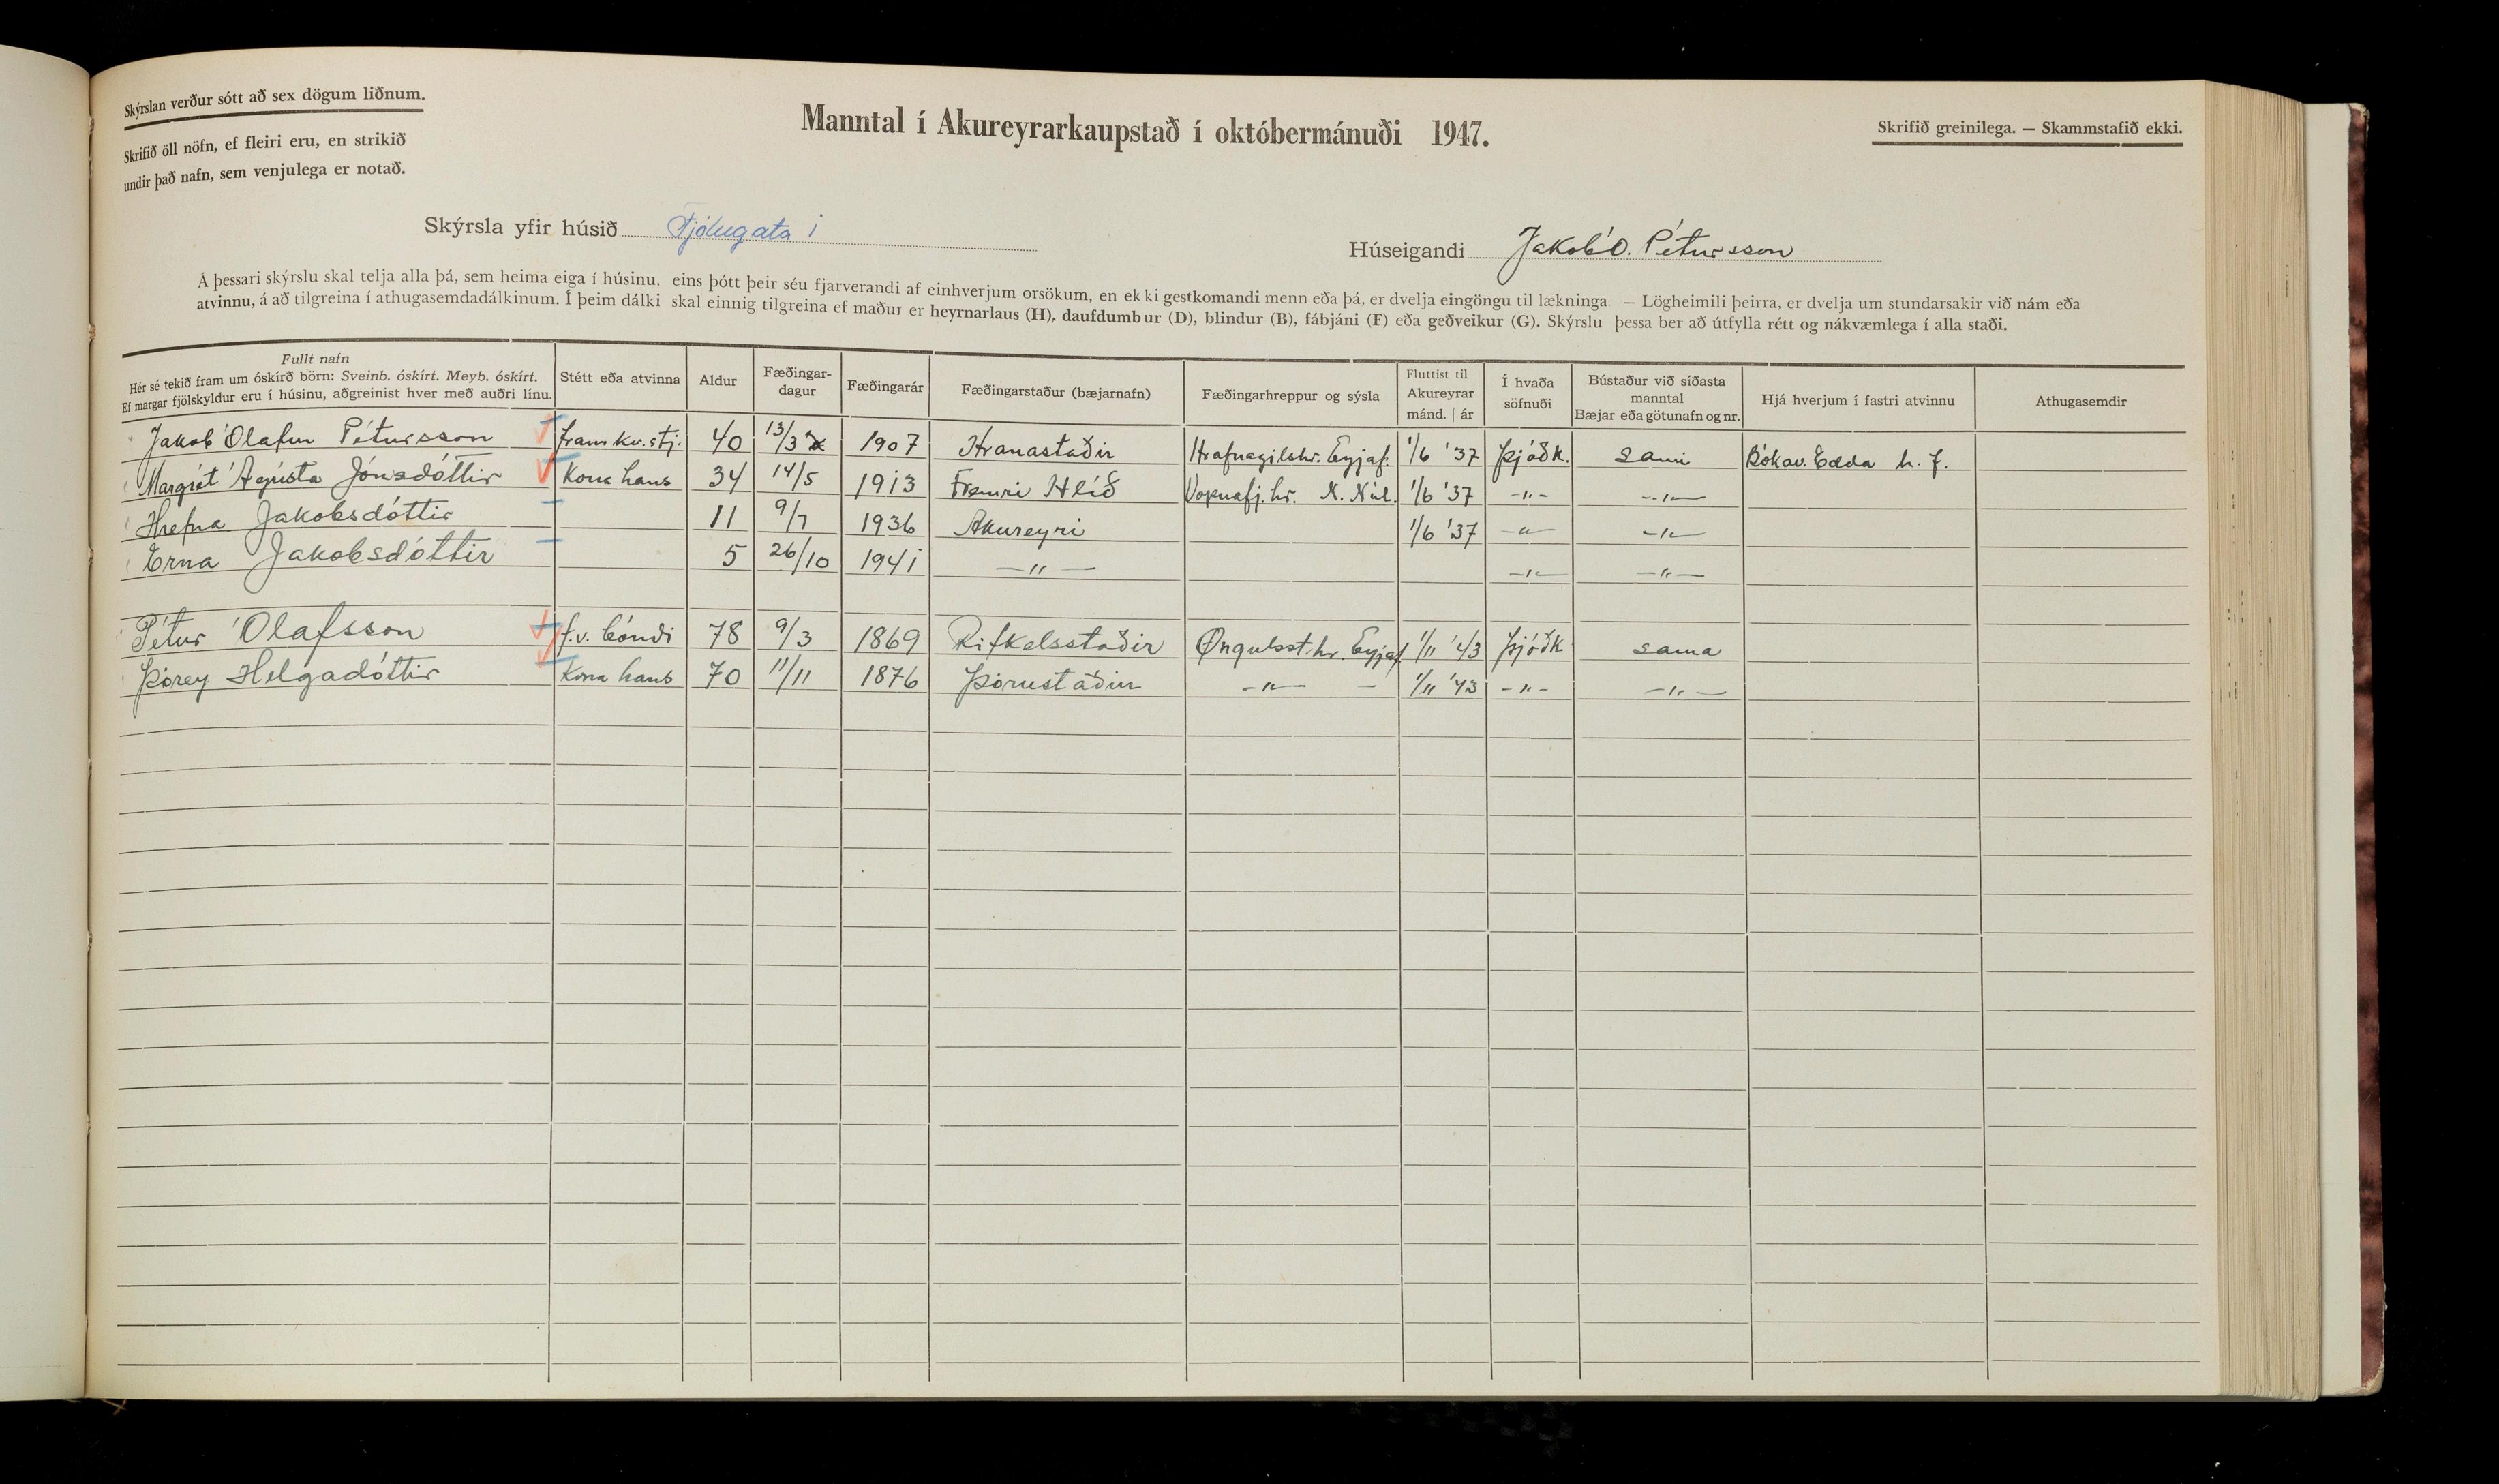 Skýrslan verður sótt að sex dögum liðnum.
Skrifið öll nöfn, ef fleiri eru, en strikið
undir það nafn, sem venjulega er notað.
Manntal í Akureyrarkaupstað í októbermánuði 1947.
Skrifið greinilega. — Skammstafið ekki.
Skýrsla yfir húsið Fjólugata 1
Húseigandi Jakob Ó. Pétursson
Á þessari skýrslu skal telja alla þá, sem heima eiga í húsinu, eins þótt þeir séu fjarverandi af einhverjum orsökum, en ekki gestkomandi menn eða þá, er dvelja eingöngu til lækninga. — Lögheimili þeirra, er dvelja um stundarsakir við nám eða
atvinnu, á að tilgreina í athugasemdadálkinum. Í þeim dálki skal einnig tilgreina ef maður er heyrnarlaus (H), daufdumbur (D), blindur (B), fábjáni (F) eða geðveikur (G). Skýrslu þessa ber að útfylla rétt og nákvæmlega í alla staði.
Fullt nafn
Hér sé tekið fram um óskírð börn: Sveinb. óskírt. Meyb. óskírt.
Ef margar fjölskyldur eru í húsinu, aðgreinist hver með auðri línu.
Stétt eða atvinna
Aldur
Fæðingar-
dagur
Fæðingarár
Fæðingarstaður (bæjarnafn)
Fæðingarhreppur og sýsla
Fluttist til
Akureyrar
mánd. | ár
Í hvaða
söfnuði
Bústaður við síðasta
manntal
Bæjar eða götunafn og nr.
Hjá hverjum í fastri atvinnu
Athugasemdir
Jakob Ólafur Pétursson framkv.stj. 40 13/3 1907 Hranastaðir Hrafnagilshr. Eyjaf. 1/6 '37 þjóðk. sami Bókav. Edda h.f.
Margrét Ágústa Jónsdóttir Kona hans 34 14/5 1913 Fremri Hlíð Vopnafj.hr. N. Múl. 1/6 '37 -"- -"-
Hrefna Jakobsdóttir 11 9/7 1936 Akureyri 1/6 '37 -"- -"-
Erna Jakobsdóttir 5 26/10 1941 -"- -"- -"-
Pétur Ólafsson f.v. bóndi 78 9/3 1869 Rifkelsstaðir Öngulsst.hr. Eyjaf 1/11 '43 þjóðk sama
Þórey Helgadóttir Kona hans 70 11/11 1876 Þórustaðir -"- 1/11 '43 -"- -"-